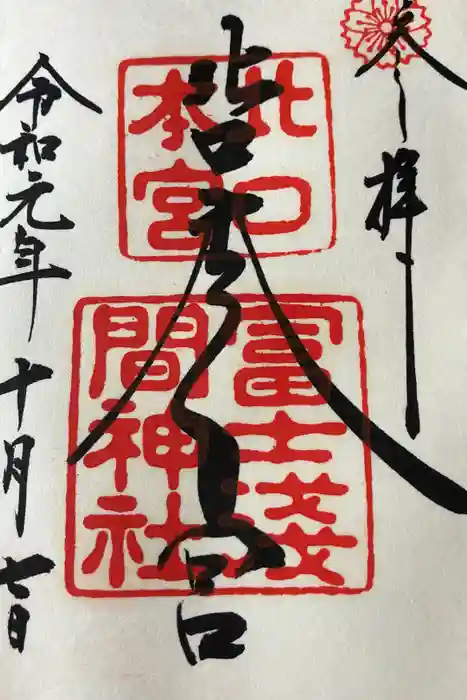 奉拝
北口本宮
北口
本宮
冨士浅
間神社
令和元年十月七日